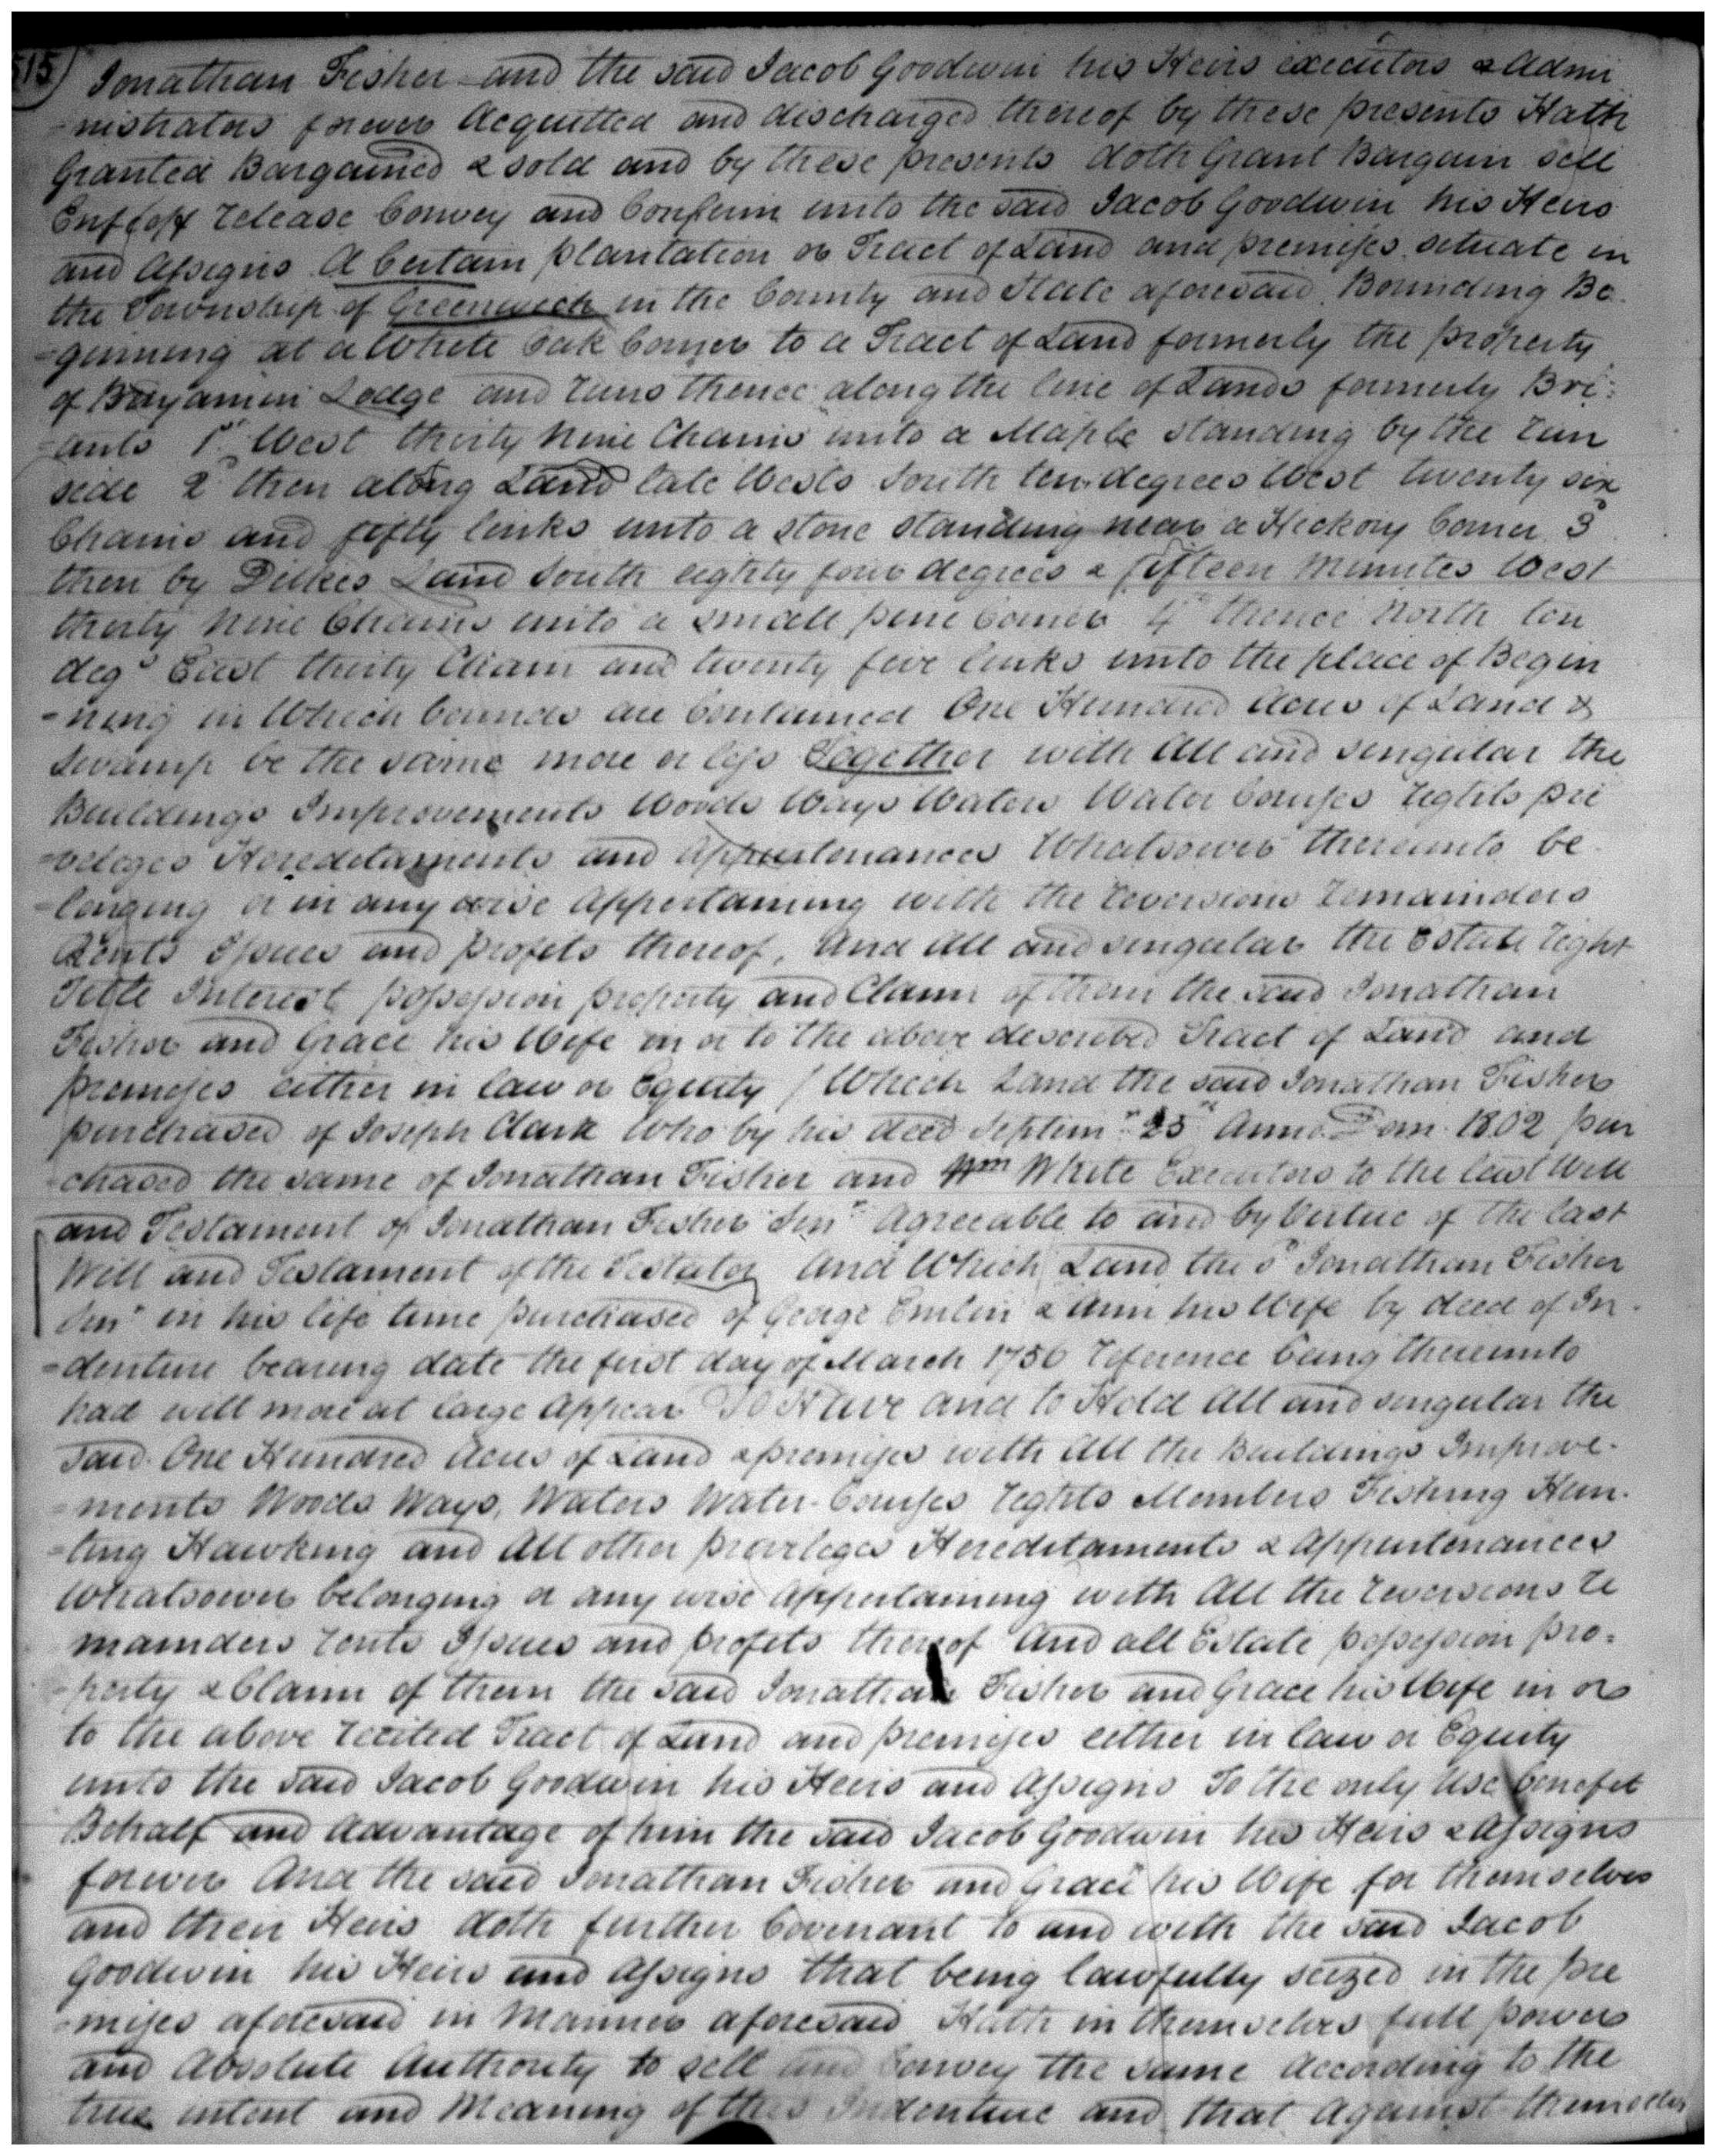 515) Jonathan Fisher and the said Jacob Goodwin his Heirs executors & Admi
-nistrators forever Acquitted and discharged thereof by these presents Hath
Granted Bargained & sold and by these presents doth Grant Bargain sell
Enfeoff release Convey and Confirm unto the said Jacob Goodwin his Heirs
and Assigns A Certain plantation or Tract of Land and premises situate in
the Township of Greenwich in the County and State aforesaid Bounding Be
-ginning at a White Oak Corner to a Tract of Land formerly the property
of Benjamin Lodge and runs thence along the line of Lands formerly Bri=
-ants 1st West thirty nine Chains unto a Maple standing by the run
side 2d then along Land late Wests South ten degrees West twenty six
Chains and fifty links unto a stone standing near a Hickory Corner 3d
then by Dilkes Land South eighty four degrees & fifteen Minutes West
thirty nine Chains unto a small pine Corner 4th thence North ten
degs East thirty Chain and twenty five links unto the place of Begin
-ning in Which bounds are Contained One Hundred Acres of Land &
Swamp be the same more or less Together with All and singular the
Buildings Improvements Woods Ways Waters Water Courses rights pri
-veleges Hereditaments and Appurtenances Whatsoever thereunto be
-longing or in any wise Appertaining with the reversions remainders
Rents Issues and profits thereof, And All and singular the Estate right
Title Interest possession property and Claim of them the said Jonathan
Fisher and Grace his Wife in or to the above described Tract of Land and
premises either in law or Equity / Which Land the said Jonathan Fisher
purchased of Joseph Clark Who by his deed Septemr 25th Anno Dom. 1802 pur
-chased the same of Jonathan Fisher and Wm White Executors to the last Will
and Testament of Jonathan Fisher Senr Agreeable to and by Vertue of the last
Will and Testament of the Testator And Which Land the sd Jonathan Fisher
Senr in his life time purchased of George Emlen & Ann his Wife by deed of In-
-denture bearing date the first day of March 1756 reference being thereunto
had will more at large Appear To Have and to Hold All and singular the
said One Hundred Acres of Land & premises with All the Buildings Improve-
-ments Woods Ways, Waters Water-Courses rights Members Fishing Hun-
-ting Hawking and All other priveleges Hereditaments & Appurtenances
Whatsoever belonging or any wise Appertaining with All the reversions re
mainders rents Issues and profits thereof And all Estate possession pro=
-perty & Claim of them the said Jonathan Fisher and Grace his Wife in or
to the above recited Tract of Land and premises either in law or Equity
unto the said Jacob Goodwin his Heirs and Assigns To the only Use benefit
Behalf and Advantage of him the said Jacob Goodwin his Heirs & Assigns
forever And the said Jonathan Fisher and Grace his Wife for themselves
and their Heirs doth further Covenant to and with the said Jacob
Goodwin his Heirs and Assigns that being lawfully seized in the pre
-mises aforesaid in Manner aforesaid Hath in themselves full power
and Absolute Authority to sell and Convey the same According to the
true intent and Meaning of this Indenture and that Against themselves